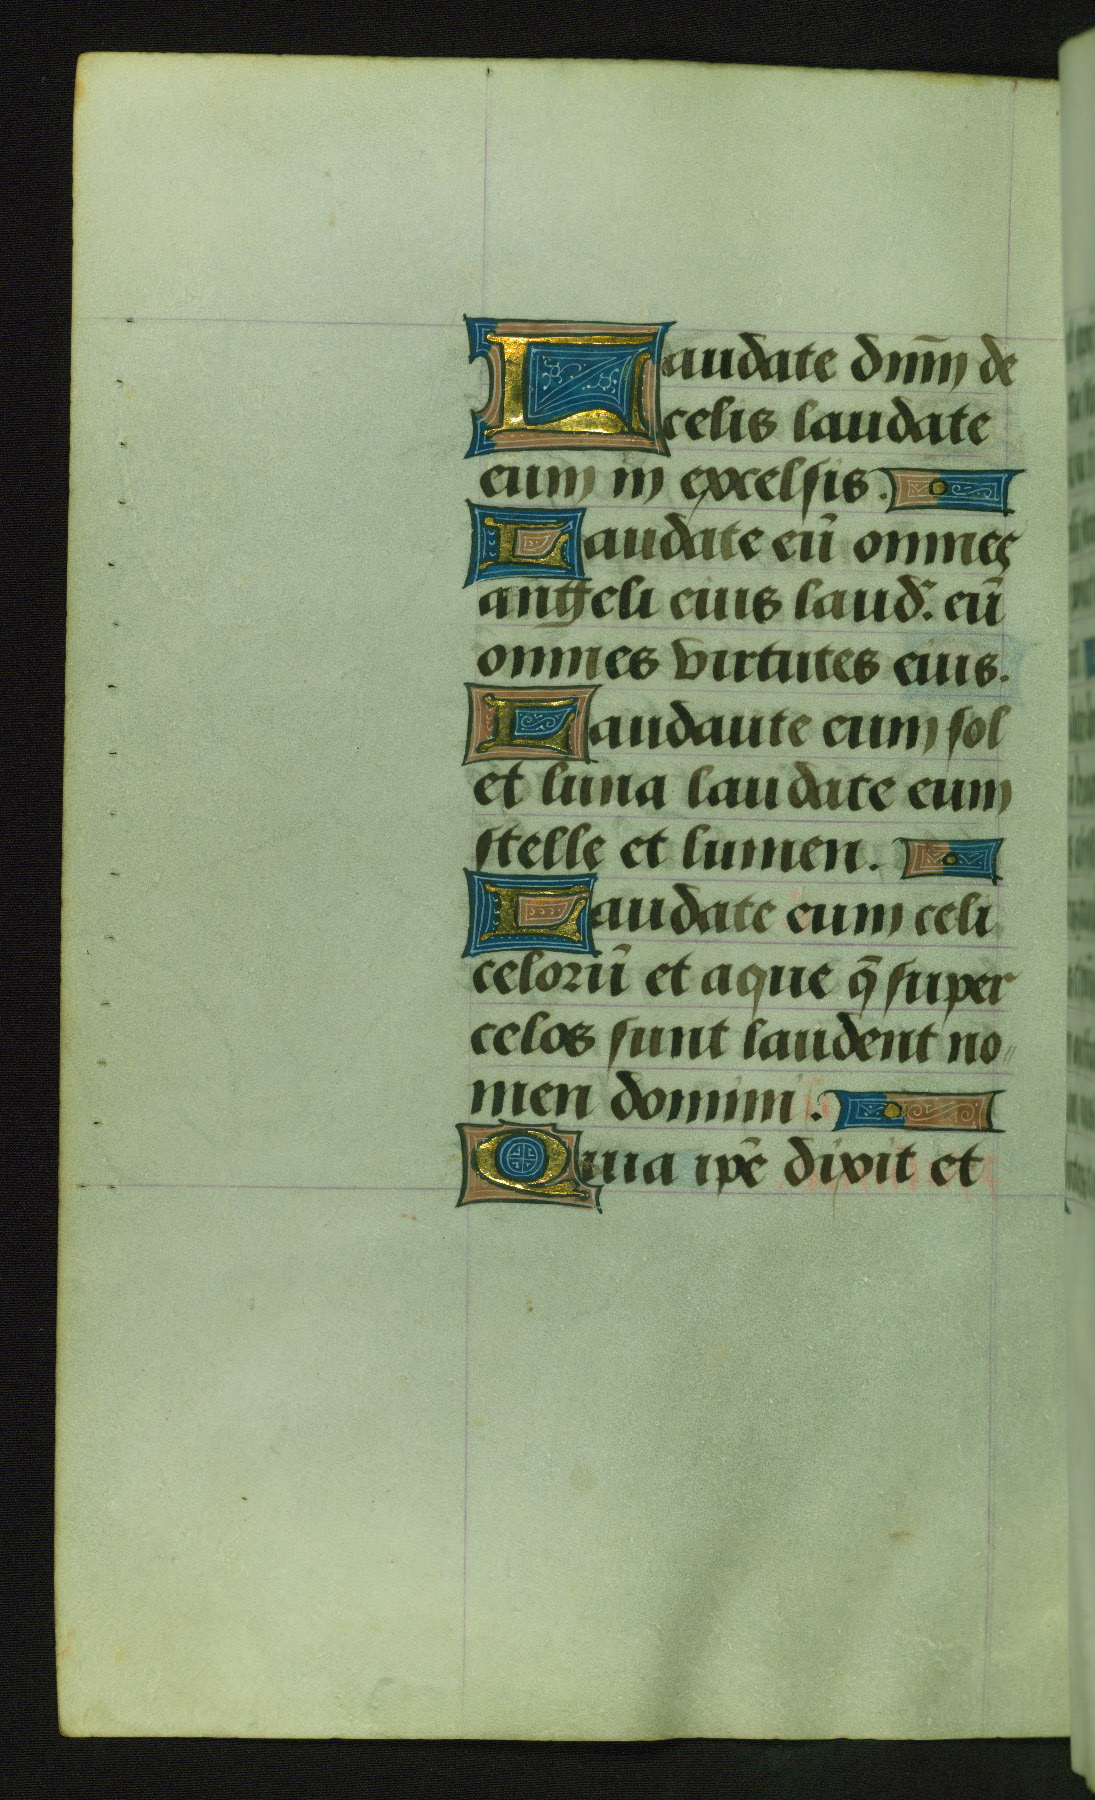 Laudate dm̄m de
celis laudate
eum in excelsis.
Laudate eū omnes
angeli eius laud̾. eū
omnes virtutes eius.
Laudaute eum sol
et luna laudate eum
stelle et lumen.
Laudate eum celi
celorū et aque q̄ super
celos sunt laudent no〃
men domini.
Quia ip̄e dixit et